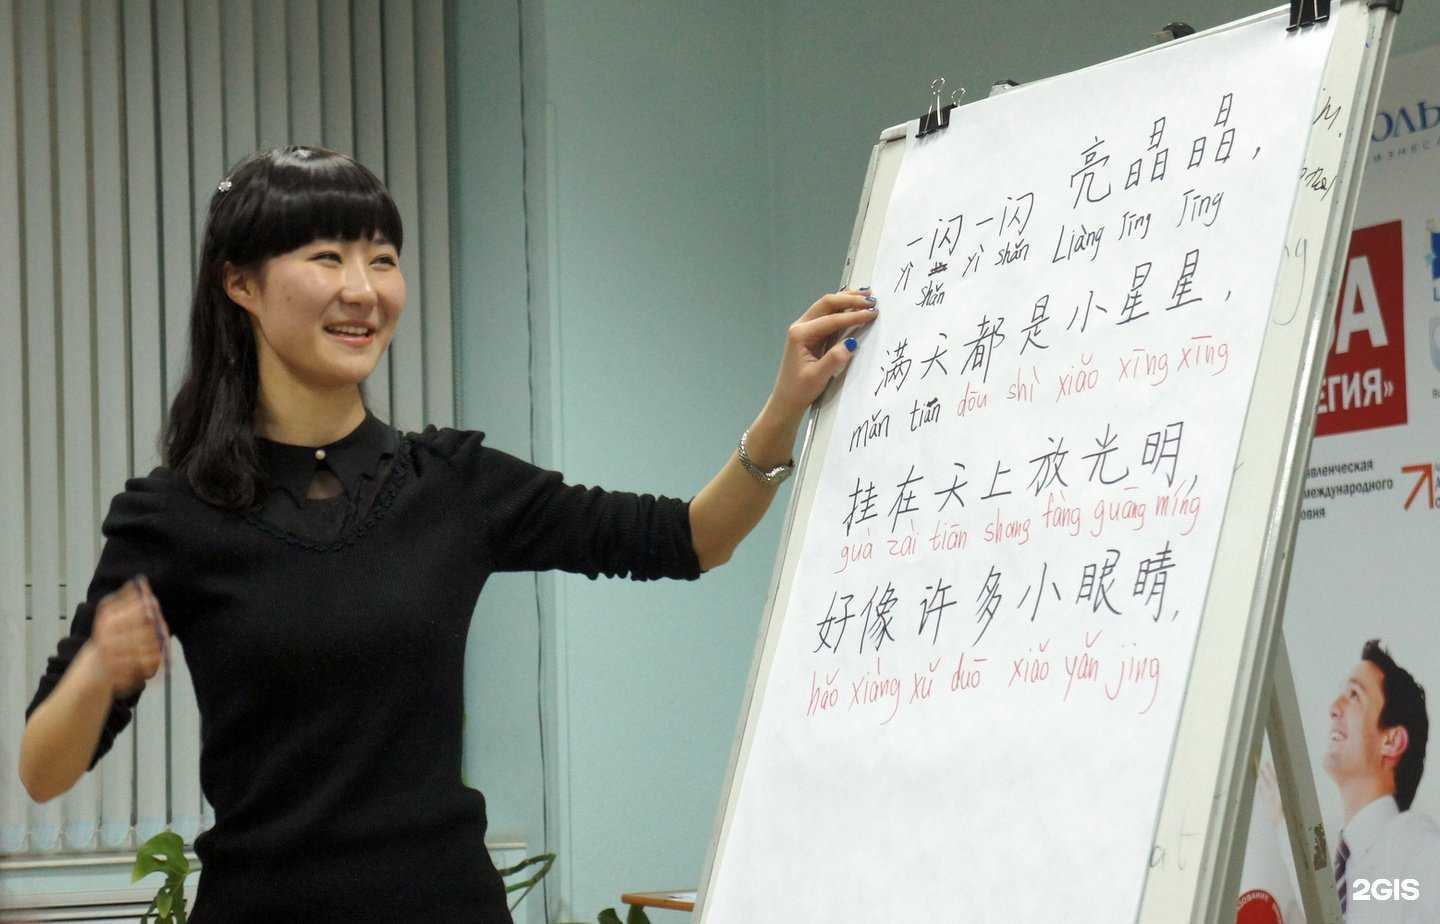 一闪一闪 亮晶晶,
yì shǎn yì shǎn Liàng Jīng Jīng
满天都是小星星,
mǎn tiān dōu shì xiǎo xīng xīng
挂在天上放光明,
guà zài tiān shang fàng guāng míng
好像许多小眼睛,
hǎo xiàng xǔ duō xiǎo yǎn jing
ЕГИЯ»
международного
2GIS